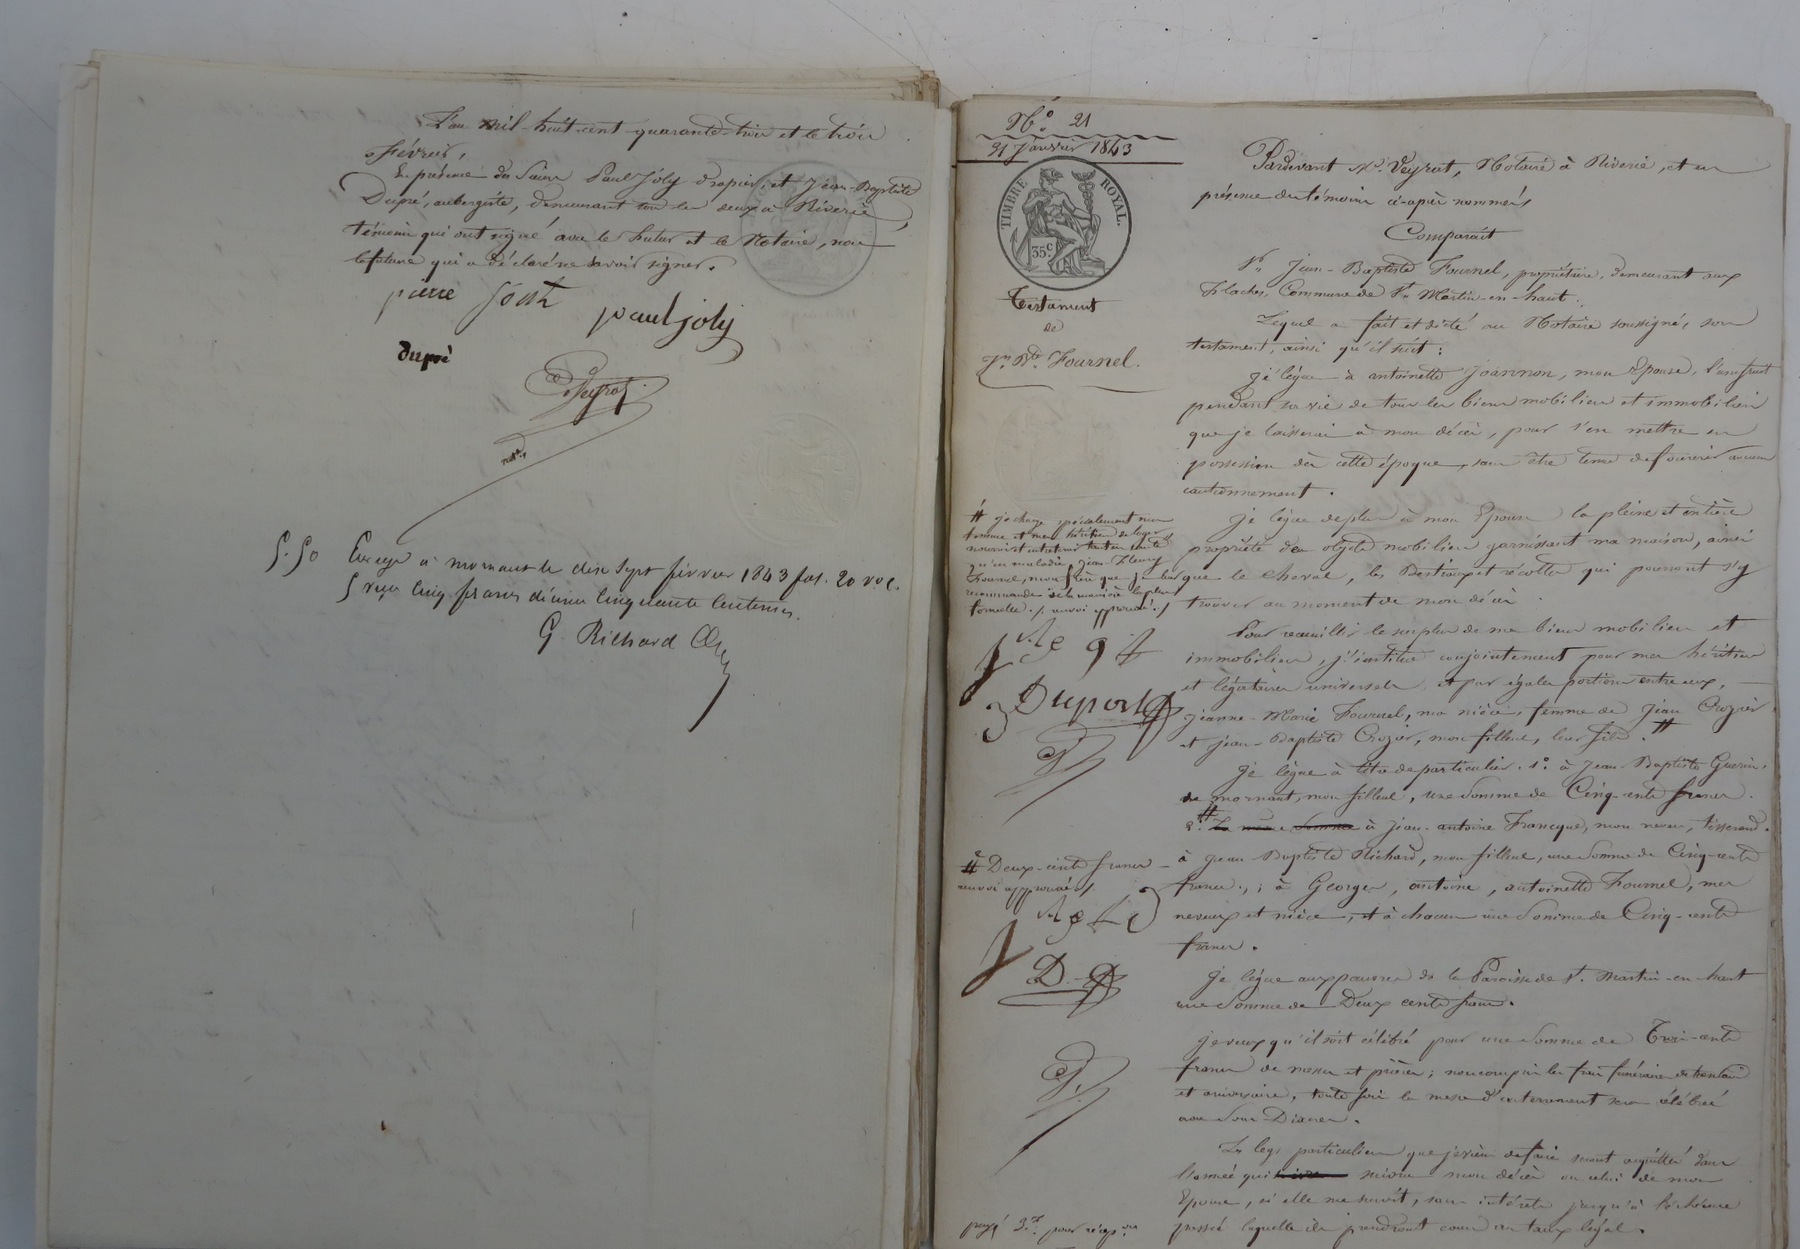 L'an mil-huit-cent-quarante-trois et le trois
Février,
En présence des Sieurs Paul Joly drapier, et Jean-Baptiste
Dupré, aubergiste, demeurant tous les deux à Riverie,
témoins qui ont signé avec le futur et le Notaire, non
la future qui a déclaré ne savoir signer.
pierre
paul joly
dupré
Veyrat
not.
5.50 Enregé à mornant le dix sept février 1843 fol. 20 v.o c.
5 reçu cinq francs décime cinquante centimes.
G. Richard
N.o 21
21 Janvier 1843
TIMBRE ROYAL.
35.c
Testament
de
J.n B.te Fournel.
Pardevant M.e Veyrat, Notaire à Riverie, et en
présence des témoins ci-après nommés
Comparait
S.r Jean-Baptiste Fournel, propriétaire, demeurant aux
Flaches, Commune de S.t Martin-en-haut.
Lequel a fait et dicté au Notaire soussigné, son
testament, ainsi qu'il suit:
je lègue à antoinette Joannon, mon Epouse, l'usufruit
pendant sa vie de tous les biens mobiliers et immobiliers
que je laisserai à mon décès, pour s'en mettre en
possession dès cette époque, sans être tenue de fournir aucun
cautionnement.
je lègue de plus à mon Epouse la pleine et entière
propriété des objets mobiliers garnissant ma maison, ainsi
que le cheval, les Bestiaux et récoltes qui pourront s'y
trouver au moment de mon décès.
# je charge spécialement ma
femme et mes héritiers de loger
nourrir et entretenir tant en santé
qu'en maladie, jean-Fleury
Fournel, mon frère que je leur
recommande de la manière la plus
formelle. / renvoi approuvé. /
Duport
Pour recueillir le surplus de mes biens mobiliers et
immobiliers, j'institue conjointement pour mes héritiers
et légataires universels, et par égales portions entre eux,
jeanne-Marie Fournel, ma nièce, femme de Jean Crozier
et jean-Baptiste Crozier, mon filleul, leur fils. #
je lègue à titre de particulier. 1.o à Jean Baptiste Guerin,
de mornant, mon filleul, une somme de Cinq-cents francs.
2.o # La même somme à jean-antoine Francque, mon neveu, tisserand.
à jean Baptiste Richard, mon filleul, une somme de Cinq-cents
francs; à Georges, antoine, antoinette Fournel, mes
neveux et nièce, et à chacun une somme de Cinq-cents
francs.
# Deux-cents francs
renvoi approuvé /
D.
je lègue aux pauvres de la Paroisse de S.t Martin-en-haut
une somme de Deux cents francs.
je veux qu'il soit célébré pour une somme de Trois-cents
francs de messes et prières; non compris les frais funéraires de trentain
et anniversaire, toute fois la messe d'enterrement sera célébrée
avec Sous Diacres.
Les legs particuliers que je viens de faire seront acquittés dans
l'année qui suivra mon décès ou celui de mon
Epouse, si elle me survit, sans intérêts jusqu'à l'échéance
passé laquelle ils prendront cours au taux légal.